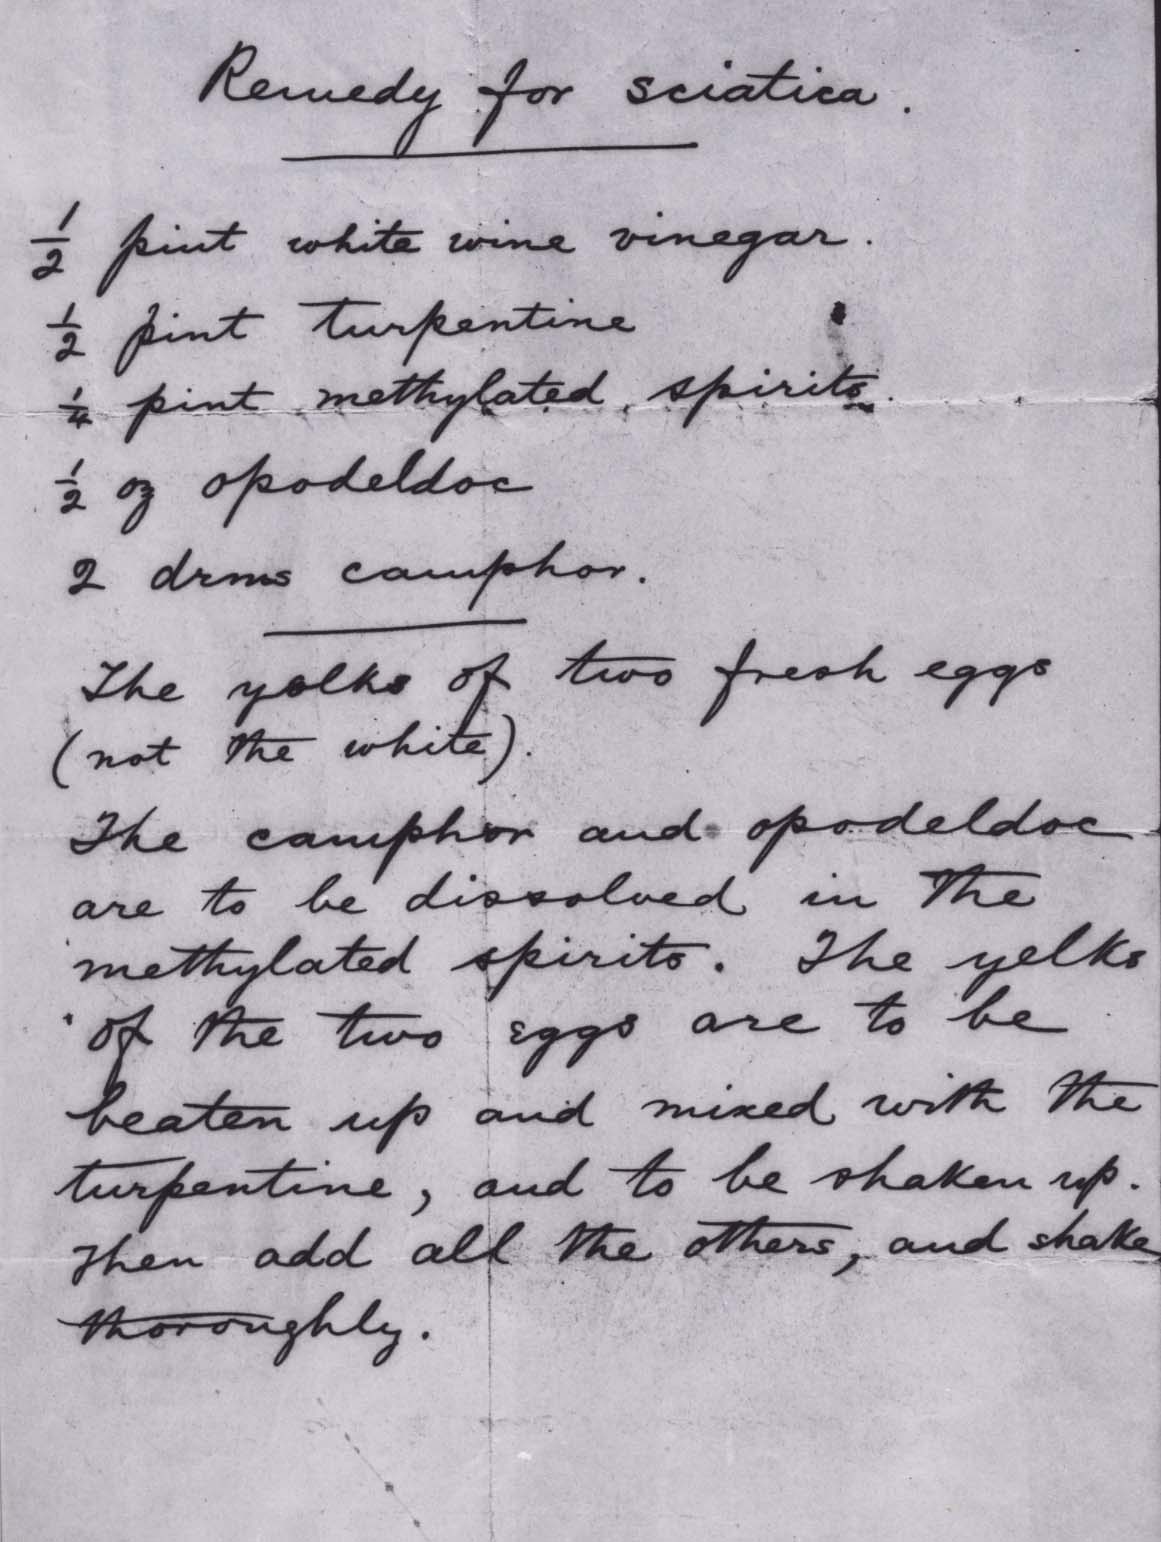 Remedy for sciatica.
1/2 pint white wine vinegar.
1/2 pint turpentine
1/4 pint methylated spirits.
1/2 oz opodeldoc
2 drms camphor.
The yolks of two fresh eggs
(not the white).
The camphor and opodeldoc
are to be dissolved in the
methylated spirits. The yelks
of the two eggs are to be
beaten up and mixed with the
turpentine, and to be shaken up.
Then add all the others, and shake
thoroughly.